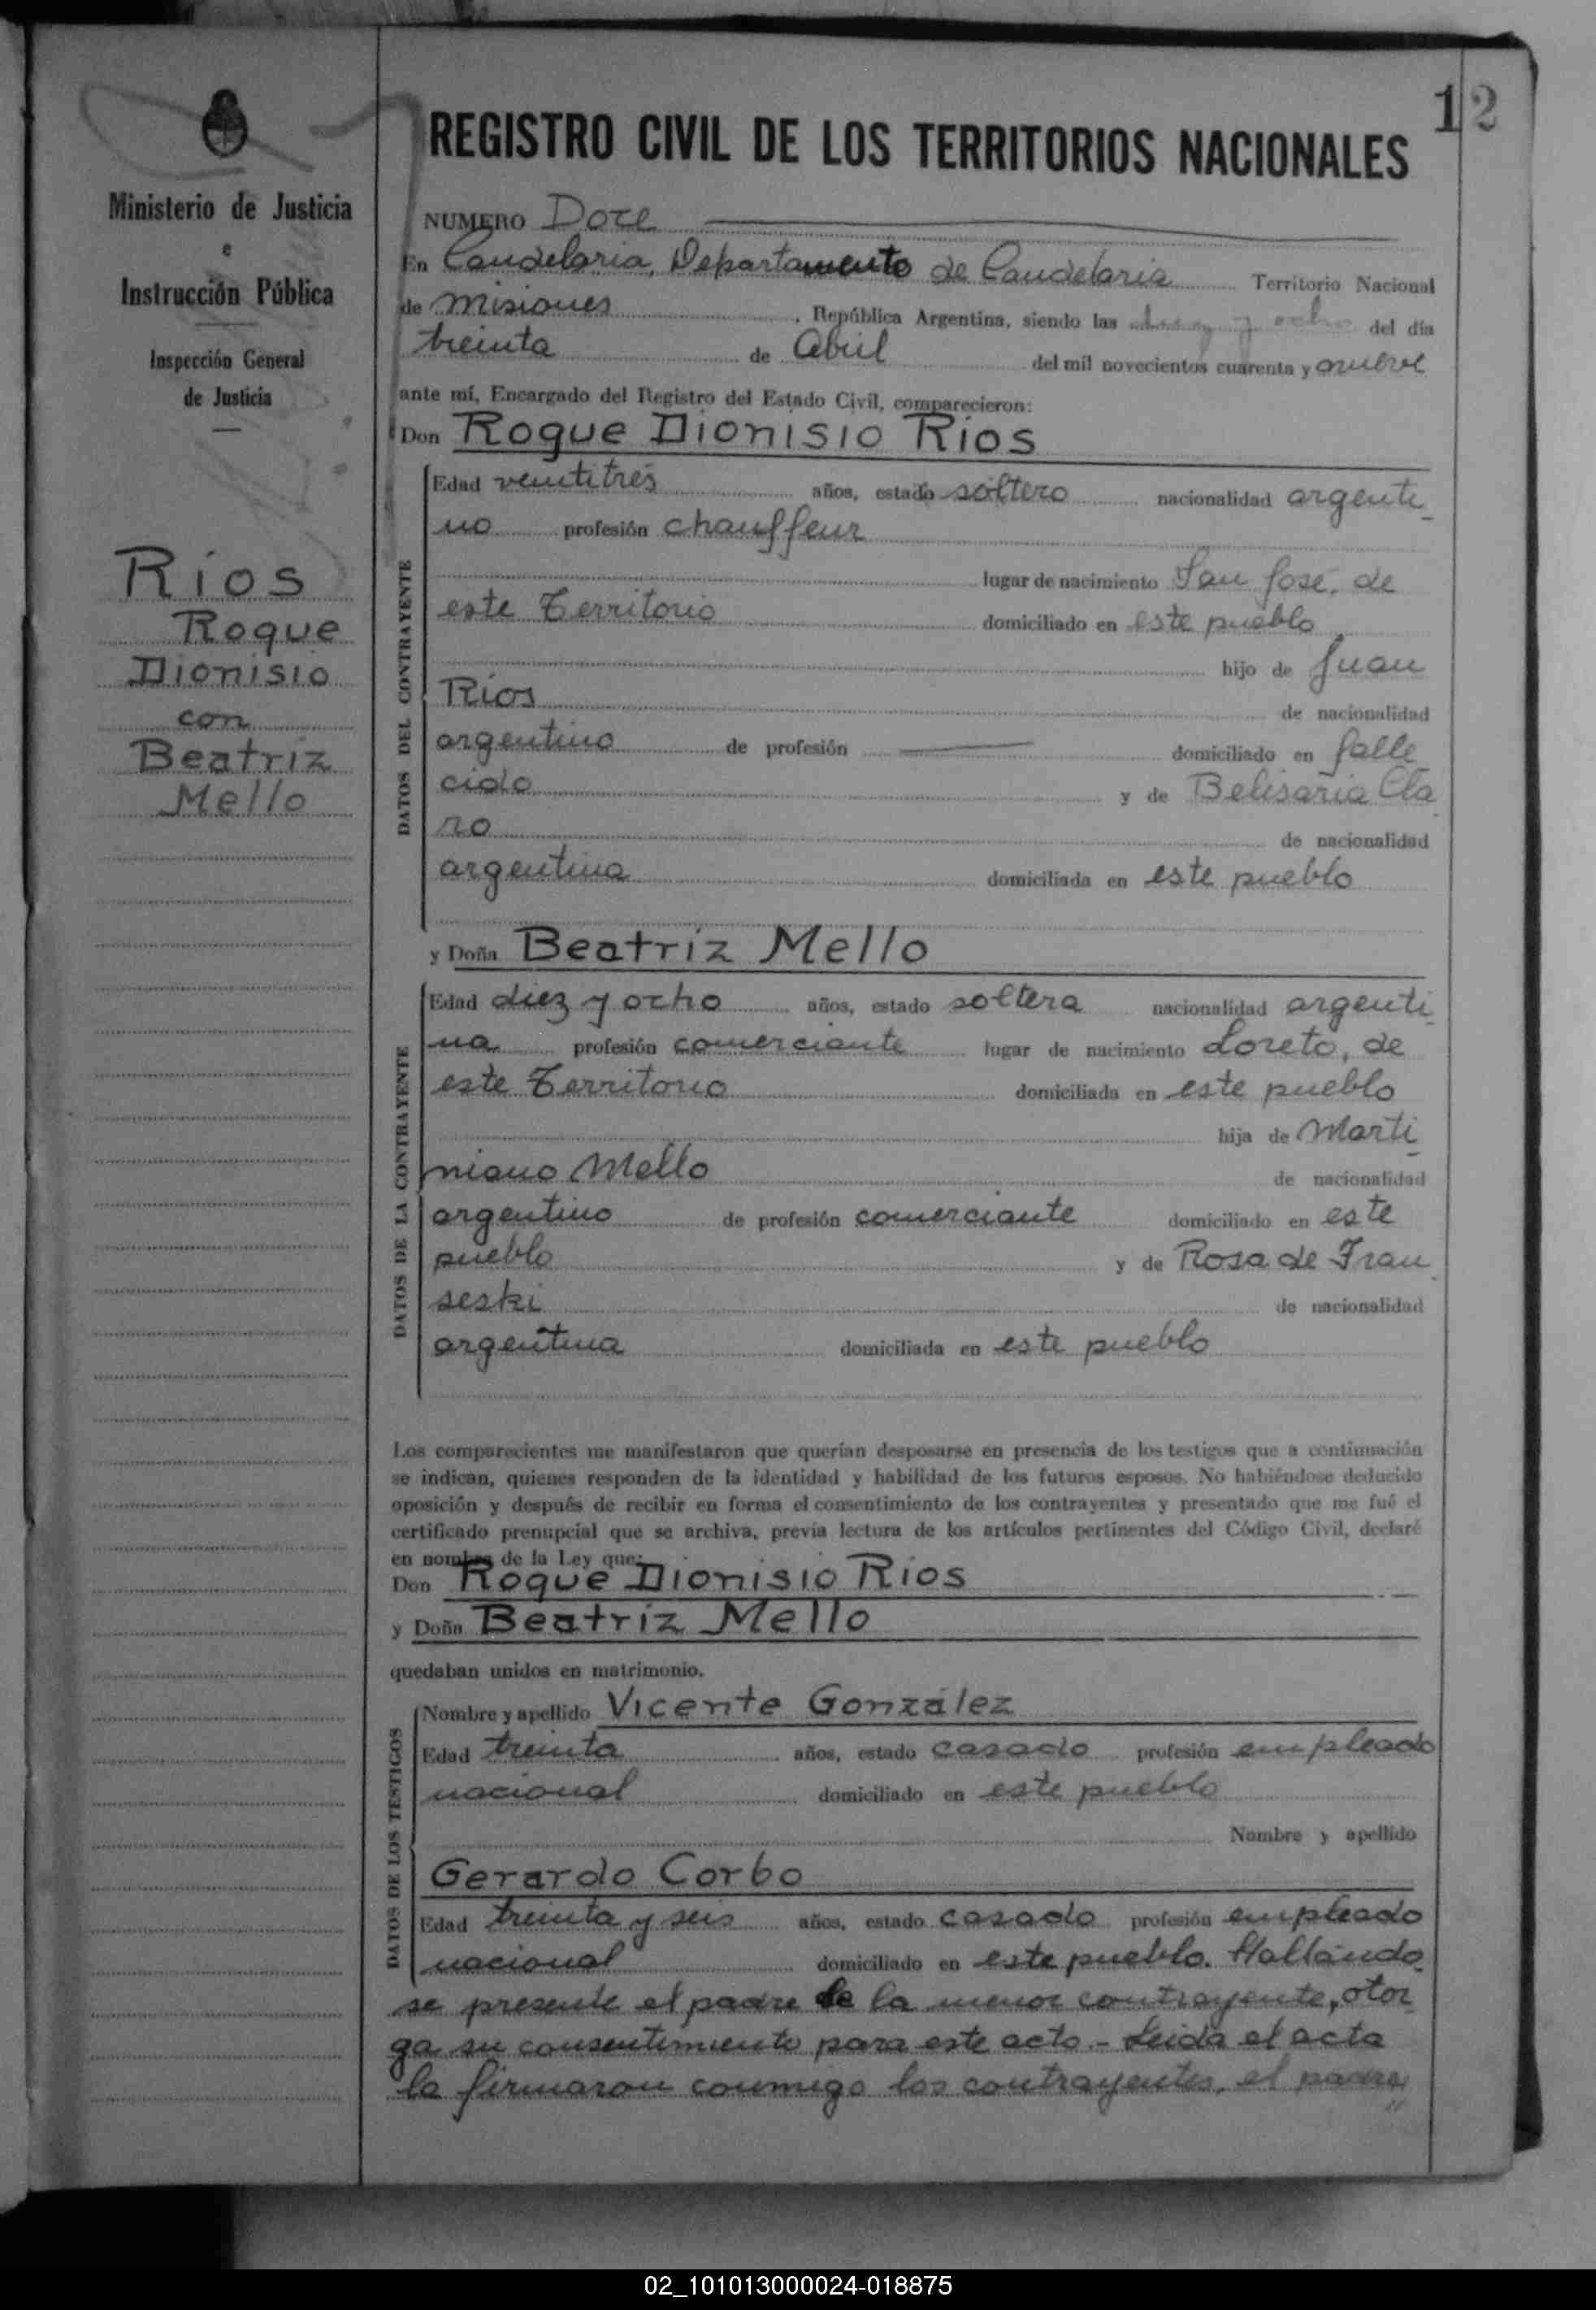 12
REGISTRO CIVIL DE LOS TERRITORIOS NACIONALES
Ministerio de Justicia
e
Instrucción Pública
Inspección General
de Justicia
Ríos
Roque
Dionisio
con
Beatríz
Mello
NUMERO Doce
En Candelaria, Departamento de Candelaria Territorio Nacional
de Misiones, República Argentina, siendo las y ocho del día
treinta de Abril del mil novecientos cuarenta y nueve
ante mí, Encargado del Registro del Estado Civil, comparecieron:
Don Roque Dionisio Ríos
DATOS DEL CONTRAYENTE
Edad veintitres años, estado soltero nacionalidad argenti-
no profesión chauffeur
lugar de nacimiento San José, de
este Territorio domiciliado en este pueblo
hijo de Juan
Ríos de nacionalidad
argentino de profesión —— domiciliado en falle-
cido y de Belisaria Cla-
ro de nacionalidad
argentina domiciliada en este pueblo
y Doña Beatríz Mello
DATOS DE LA CONTRAYENTE
Edad diez y ocho años, estado soltera nacionalidad argenti-
na profesión comerciante lugar de nacimiento Loreto, de
este Territorio domiciliada en este pueblo
hija de Marti-
niano Mello de nacionalidad
argentino de profesión comerciante domiciliado en este
pueblo y de Rosa de Fran-
seski de nacionalidad
argentina domiciliada en este pueblo
Los comparecientes me manifestaron que querían desposarse en presencia de los testigos que a continuación
se indican, quienes responden de la identidad y habilidad de los futuros esposos. No habiéndose deducido
oposición y después de recibir en forma el consentimiento de los contrayentes y presentado que me fué el
certificado prenupcial que se archiva, previa lectura de los artículos pertinentes del Código Civil, declaré
en nombre de la Ley que:
Don Roque Dionisio Ríos
y Doña Beatríz Mello
quedaban unidos en matrimonio.
DATOS DE LOS TESTIGOS
Nombre y apellido Vicente González
Edad treinta años, estado casado profesión empleado
nacional domiciliado en este pueblo
Nombre y apellido
Gerardo Corbo
Edad treinta y seis años, estado casado profesión empleado
nacional domiciliado en este pueblo. Hallándo-
se presente el padre de la menor contrayente, otor-
ga su consentimiento para este acto.- Leída el acta
la firmaron conmigo los contrayentes, el padre,,
02_101013000024-018875